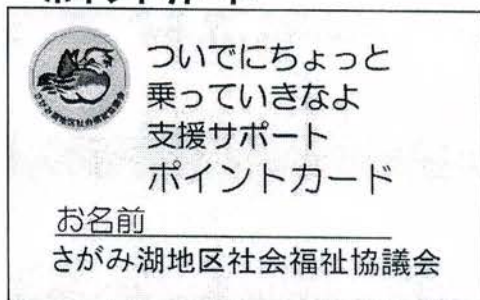 ついでにちょっと
乗っていきなよ
支援サポート
ポイントカード
お名前
さがみ湖地区社会福祉協議会